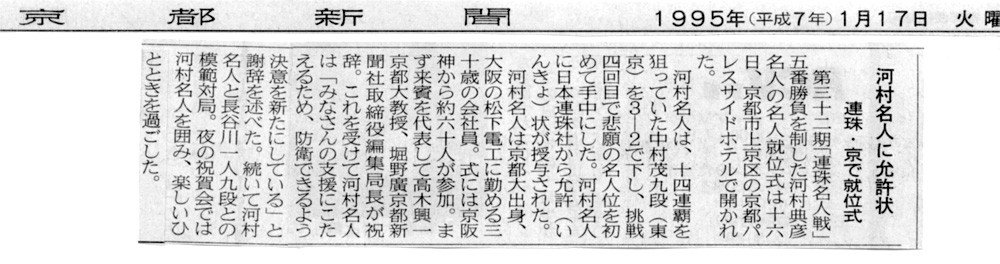 京都新聞
1995年(平成7年)1月17日 火曜
河村名人に允許状
連珠・京で就位式
第三十二期「連珠名人戦」
五番勝負を制した河村典彦
名人の名人就位式は十六
日、京都市上京区の京都パ
レスサイドホテルで開かれ
た。
河村名人は、十四連覇を
狙っていた中村茂九段(東
京)を3―2で下し、挑戦
四回目で悲願の名人位を初
めて手中にした。河村名人
に日本連珠社から允許(い
んきょ)状が授与された。
河村名人は京都大出身、
大阪の松下電工に勤める三
十歳の会社員。式には京阪
神から約六十人が参加。ま
ず来賓を代表して高木興一
京都大教授、堀野廣京都新
聞社取締役編集局長が祝
辞。これを受けて河村名人
は「みなさんの支援にこた
えるため、防衛できるよう
決意を新たにしている」と
謝辞を述べた。続いて河村
名人と長谷川一人九段との
模範対局。夜の祝賀会では
河村名人を囲み、楽しいひ
とときを過ごした。